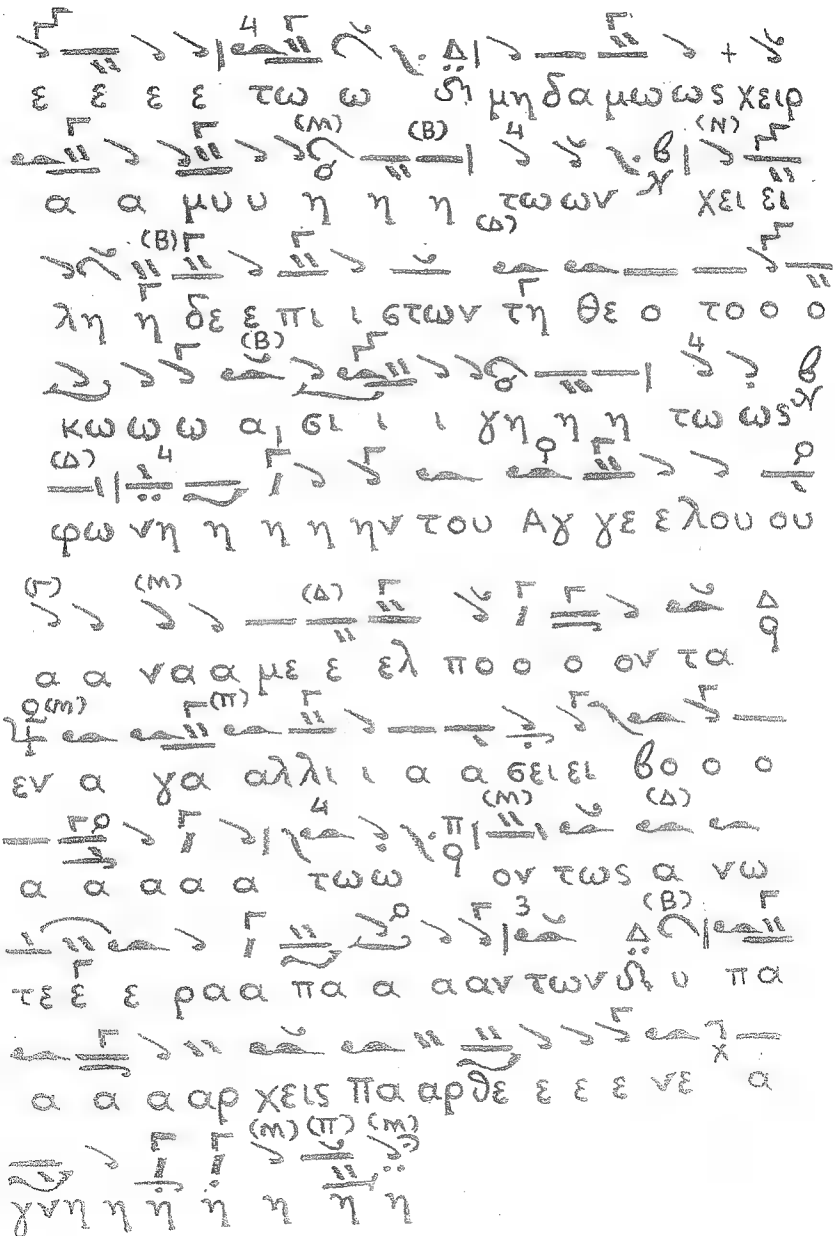 ε ε ε ε τω ω μη δα μω ως χειρ
α α μυ υ η η η τω ων χει ει
λη η δε ε πι ι στων τη θε ο το ο ο
κω ω ω α, σι ι ι γη η η τω ως
φω νη η η η ην του Αγ γε ε λου ου
α α να α με ε ελ πο ο ο ον τα
εν α γα αλ λι ι α α σει ει βο ο ο
α α α α α τω ω ον τως α νω
τε ε ε ρα α πα α α αν των υ πα
α α α αρ χεις πα αρ θε ε ε ε νε α
γνη η η η η η η